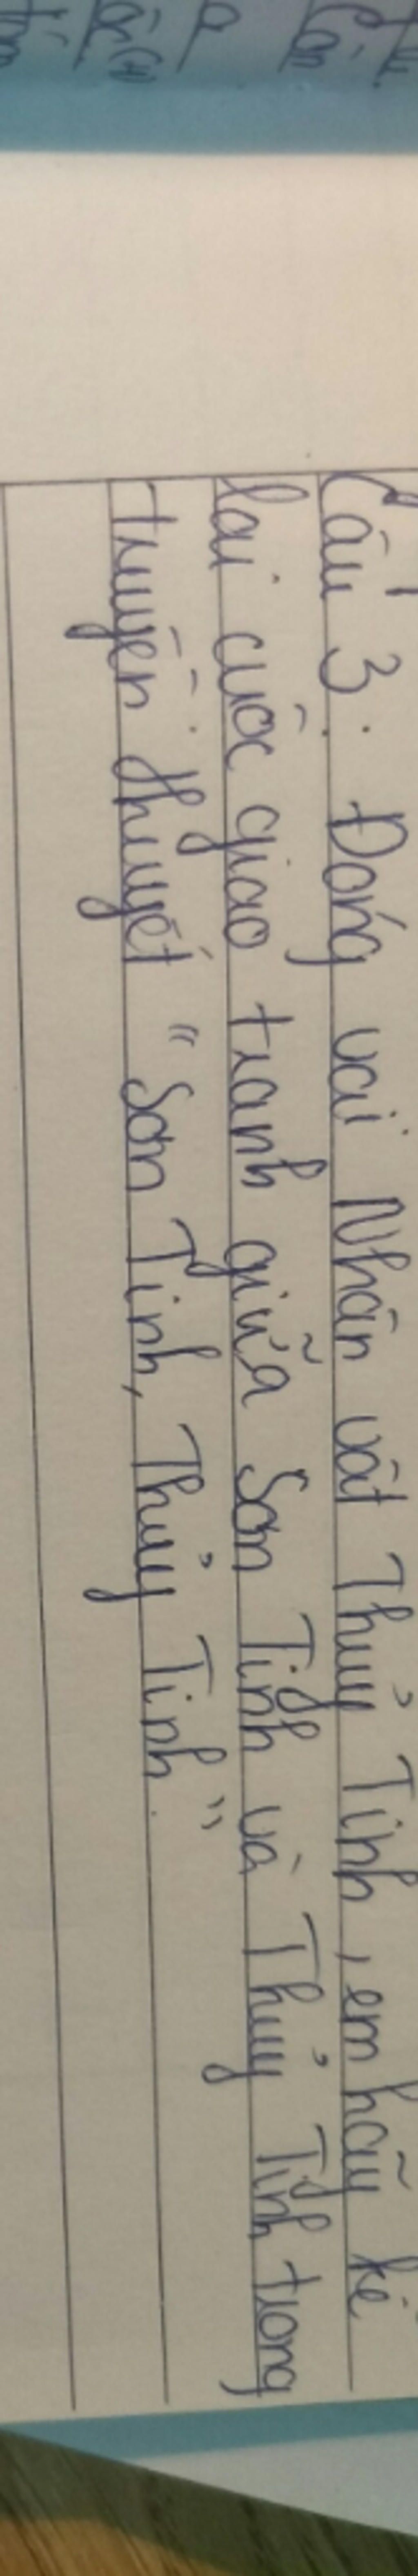 Câu 3. Đóng vai Nhân vật Thủy Tinh, em hãy kể
lại cuộc giao tranh giữa Sơn Tinh và Thủy Tinh trong
truyền thuyết "Sơn Tinh, Thủy Tinh."